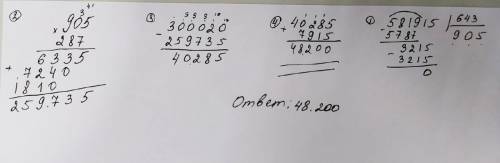 ②
905
× 287
6335
+ 7240
1810
259.735
③
300020
- 259735
40285
④
40285
+ 7915
48200
①
- 581915 | 643
5787 905
- 3215
3215
0
Ответ: 48.200